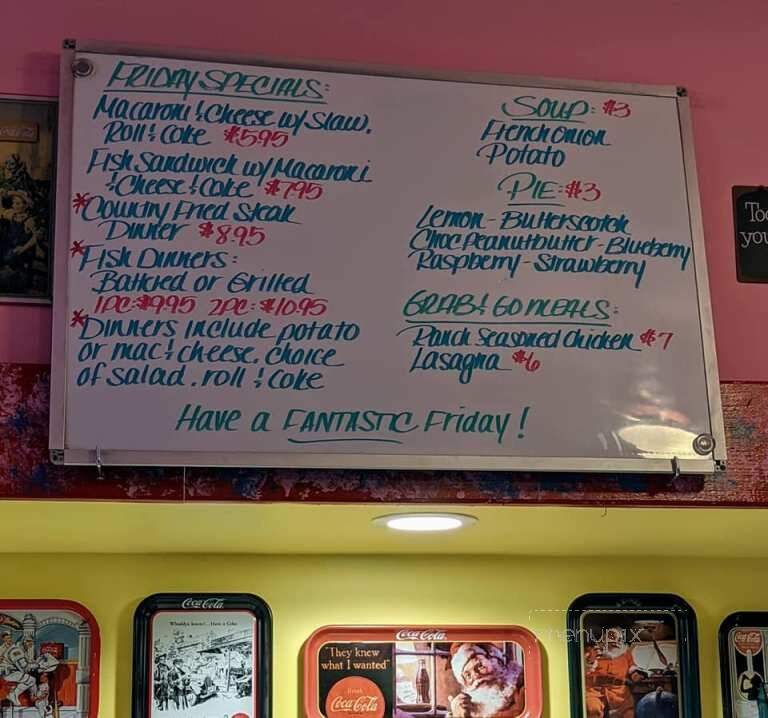 FRIDAY SPECIALS:
Macaroni & Cheese w/ Slaw,
Roll & Coke $5.95
Fish Sandwich w/ Macaroni
& Cheese & Coke $7.95
*Country Fried Steak
Dinner $8.95
*Fish Dinners:
Battered or Grilled
1PC: $9.95 2PC: $10.95
*Dinners include potato
or mac & cheese, choice
of salad, roll & Coke
SOUP: $3
French Onion
Potato
PIE: $3
Lemon - Butterscotch
Choc Peanutbutter - Blueberry
Raspberry - Strawberry
GRAB & GO MEALS:
Ranch Seasoned Chicken $7
Lasagna $6
Have a FANTASTIC Friday!
Coca-Cola
"They knew
what I wanted"
Drink
Coca-Cola
Coca-Cola
menupix